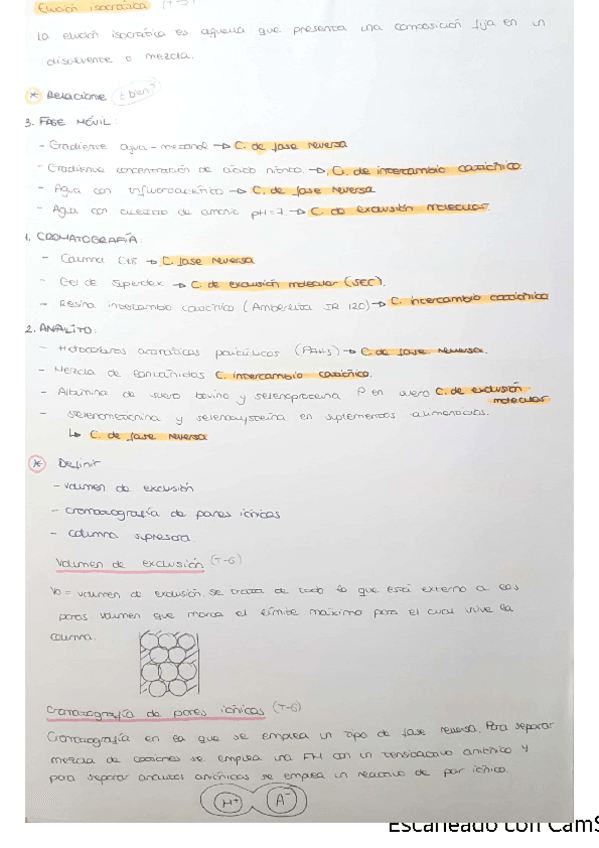 Elución isocrática (T-5)
La elución isocrática es aquella que presenta una composición fija en un
disolvente o mezcla.
* Relacione ¿bien?
3. FASE MÓVIL:
- Gradiente agua-metanol → C. de fase reversa
- Gradiente concentración de ácido nítrico. → C. de intercambio catiónico.
- Agua con trifluoroacético → C. de fase reversa
- Agua con de amonio pH=7 → C. de exclusión molecular.
1. CROMATOGRAFÍA:
- Columna C18 → C. fase reversa
- Gel de Superdex → C. de exclusión molecular (SEC).
- Resina intercambio catiónico (Amberlita IR 120) → C. intercambio catiónico
2. ANALITO:
- aromáticos policíclicos (PAHs) → C. de fase reversa.
- Mezcla de lantánidos C. intercambio catiónico.
- Albúmina de suero bovino y selenoproteína P en suero C. de exclusión
molecular
- selenometionina y selenocisteína en suplementos alimenticios.
↳ C. de fase reversa
* Definir
- volumen de exclusión
- cromatografía de pares iónicos
- columna supresora.
Volumen de exclusión (T-6)
Vo = volumen de exclusión. se trata de todo lo que está externo a los
poros volumen que marca el límite máximo para el cual vive la
columna.
Cromatografía de pares iónicos (T-6)
Cromatografía en la que se emplea un tipo de fase reversa. Para separar
mezcla de cationes se emplea una FM con un tensioactivo aniónico y
para separar analitos aniónicos se emplea un reactivo de par iónico.
M+ A-
Escaneado con CamS